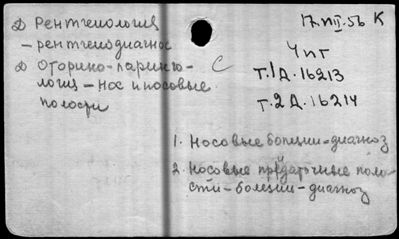 Д Рентгенология
– рентгенодиагноз
Д Оторино-ларинго-
логия – нос и носовые
полости
С
17.VII.56 К
Чпг
т.1 Д.16213
т.2 Д.16214
1. Носовые болезни-диагноз
2. Носовые придаточные поло-
сти – болезни – диагноз